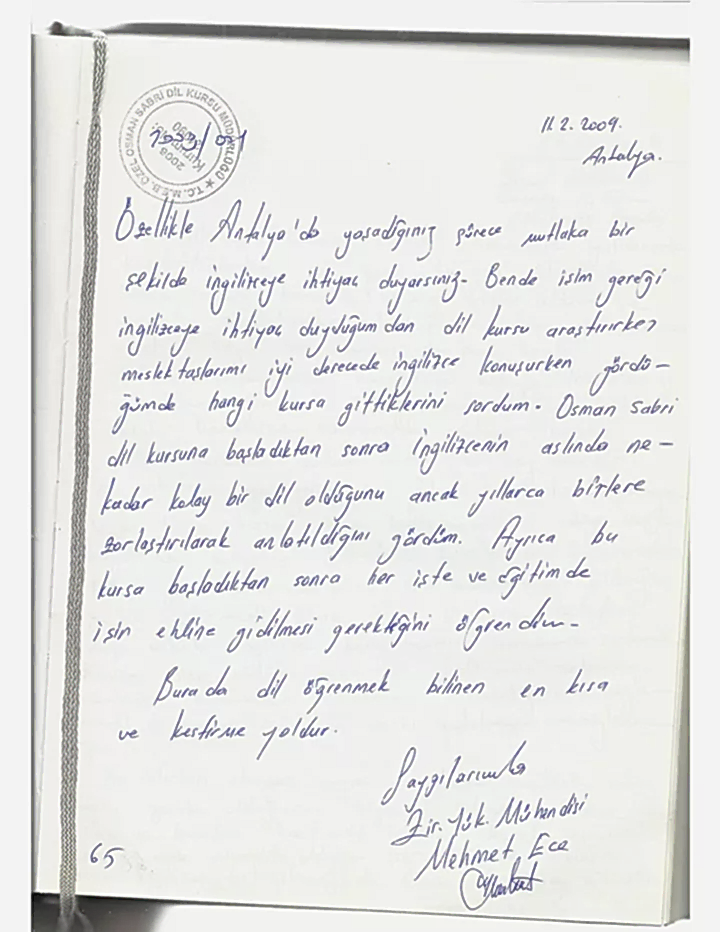 T.C. M.E.B. ÖZEL OSMAN SABRİ DİL KURSU MÜDÜRLÜĞÜ
2008
11.2.2009.
Antalya.
Özellikle Antalya'da yaşadığınız sürece mutlaka bir
şekilde ingilizceye ihtiyaç duyarsınız. Bende işim gereği
ingilizceye ihtiyaç duyduğumdan dil kursu araştırırken
meslektaşlarımı iyi derecede ingilizce konuşurken gördü-
ğümde hangi kursa gittiklerini sordum. Osman Sabri
dil kursuna başladıktan sonra İngilizcenin aslında ne-
kadar kolay bir dil olduğunu ancak yıllarca bizlere
zorlaştırılarak anlatıldığını gördüm. Ayrıca bu
kursa başladıktan sonra her işte ve eğitimde
işin ehline gidilmesi gerektiğini öğrendim.
Burada dil öğrenmek bilinen en kısa
ve kestirme yoldur.
Saygılarımla
Zir. Yük. Mühendisi
Mehmet Ece
65